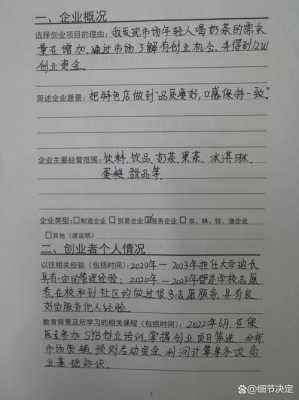 一、企业概况
选择创业项目的理由：我发现市场年轻人喝奶茶的需求
量在增加，通过市场了解有创业机会，并得到以
创业资金。
简述企业愿景：把特色店做到“品质要好，口感保持一致”。
企业主要经营范围：饮料、饮品、奶茶、果茶、冰淇淋、
蛋糕、甜品等。
企业类型：□制造企业 □贸易企业 ☑服务企业 □农、林、牧、渔企业
□其他（请说明）
二、创业者个人情况
以往相关经验（包括时间）：2020年—2023年担任大学班长
具有一定的管理经验；2020年—2023年暨在学校志愿
者在校和到社区的做过很多志愿服务，具有良
好的服务他人经验。
教育背景及所学习的相关课程（包括时间）：2022年4月，在
参加SYB创业培训，掌握创业项目筛选、分析
市场营销、预测启动资金、利润计算等知识
业基础知识。
@细节决定